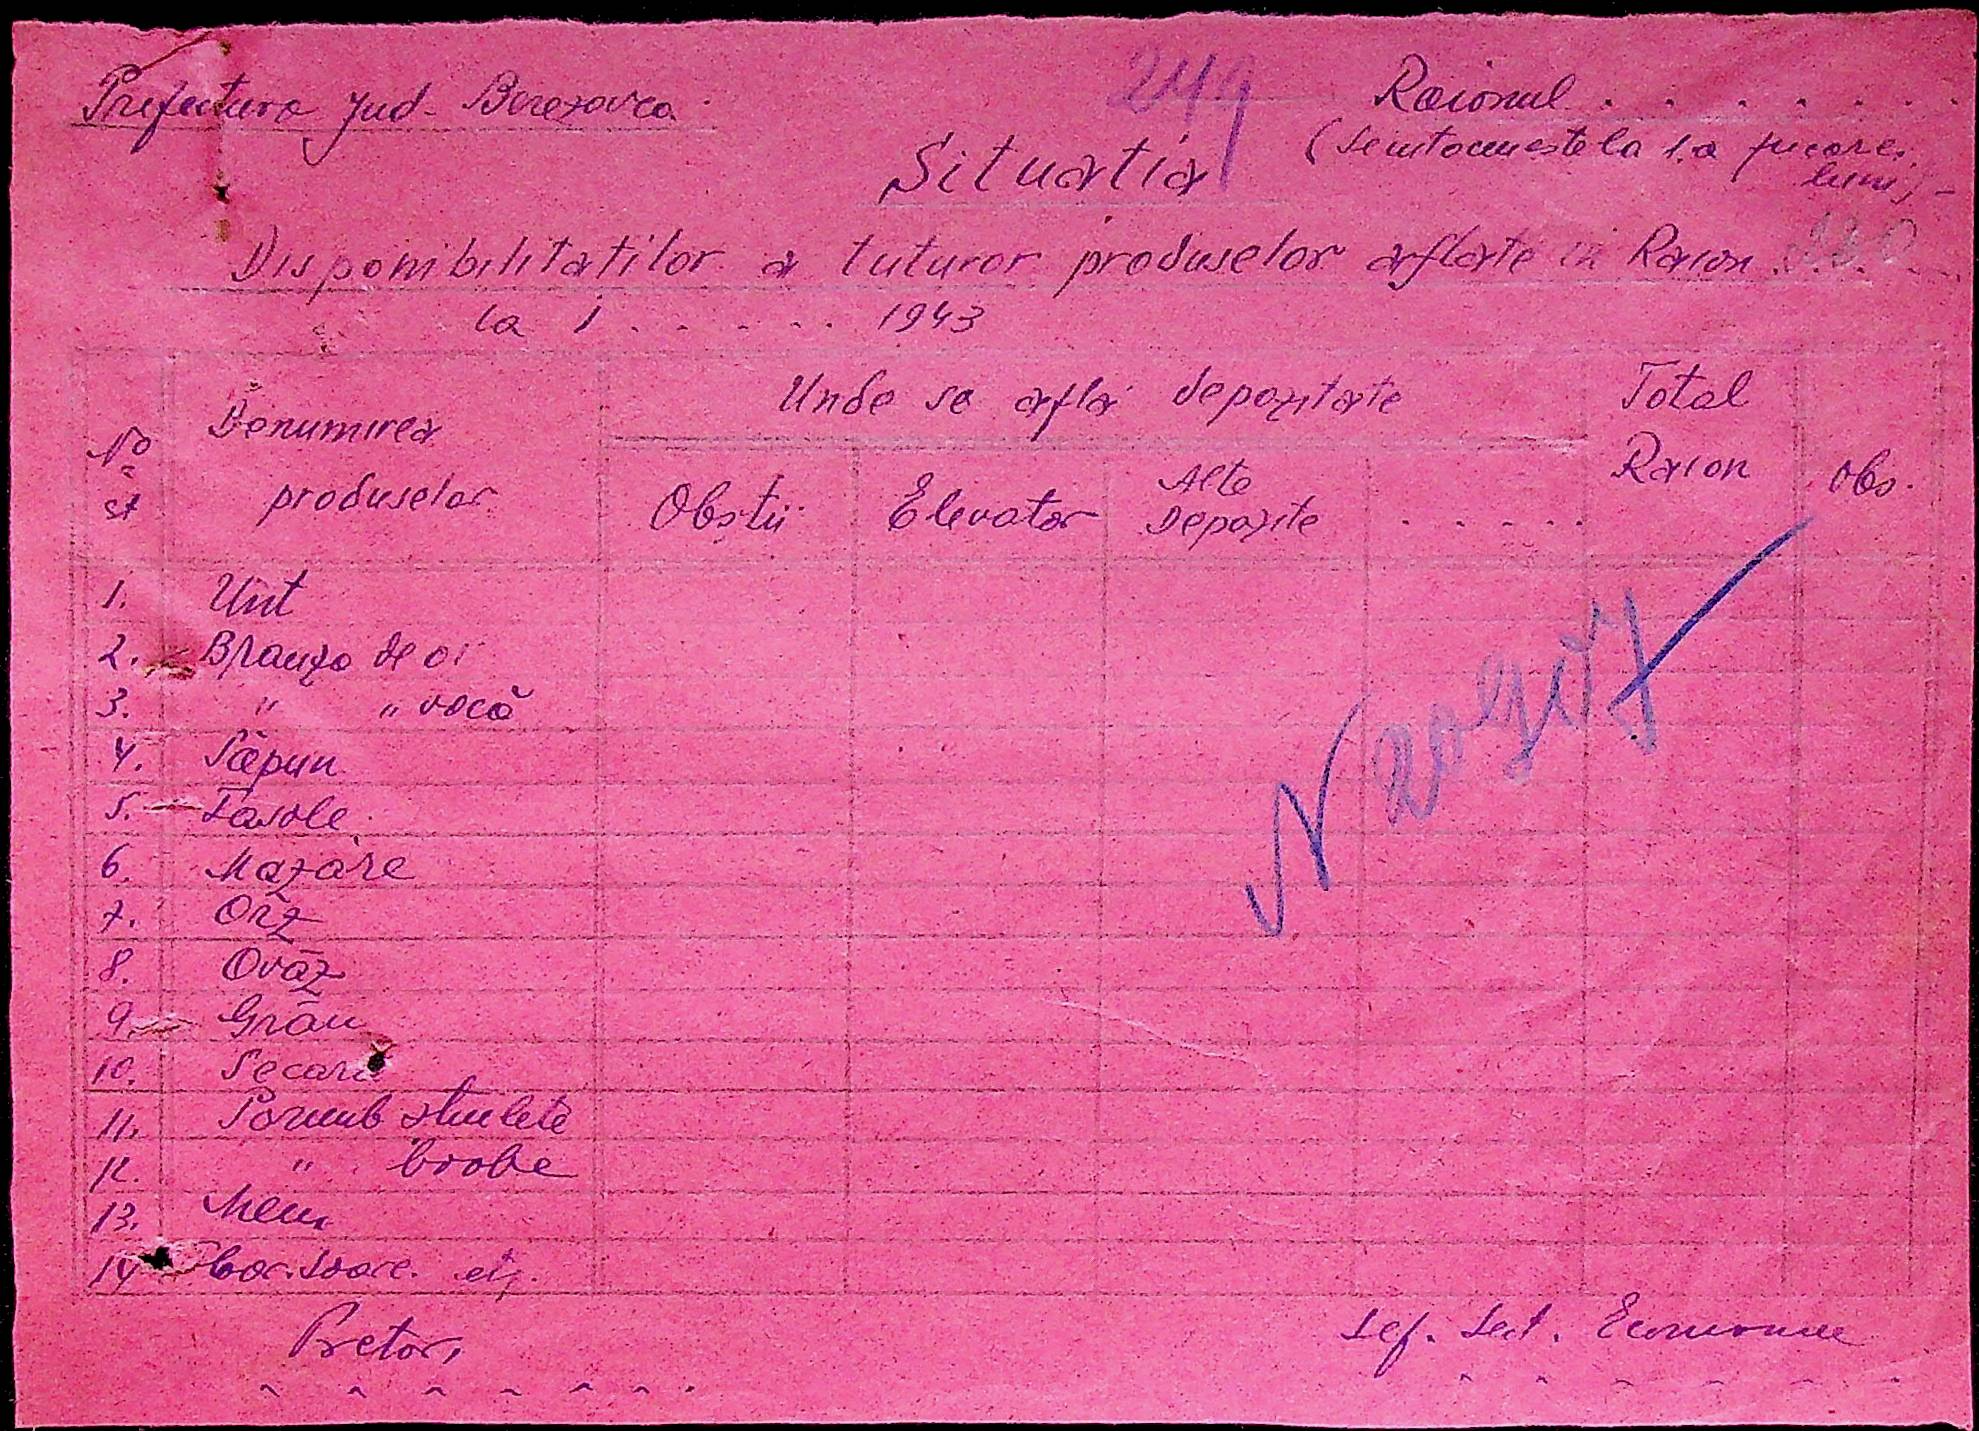 249
Prefectura Jud. Berezovca
Raionul . . . . . . . .
(Se intocmeste la 1.a fiecarei
luni)-
Situatia
Disponibilitatilor a tuturor produselor aflate in Raion . . . .
la 1 . . . . . . 1943
No st
Denumirea produselor
Unde se află depozitate
Obștii
Elevator
Alte Depozite
. . . . . .
Total Raion
Obs.
1. Unt
2. Branza de oi
3. " " vacă
4. Săpun
5. Fasole
6. Mazăre
7. Orz
8. Ovăz
9. Grâu
10. Secară
11. Porumb stiulete
12. " boabe
13. Meiu
14 Flor. Soare. etc.
Pretor,
Sef. Sect. Economic